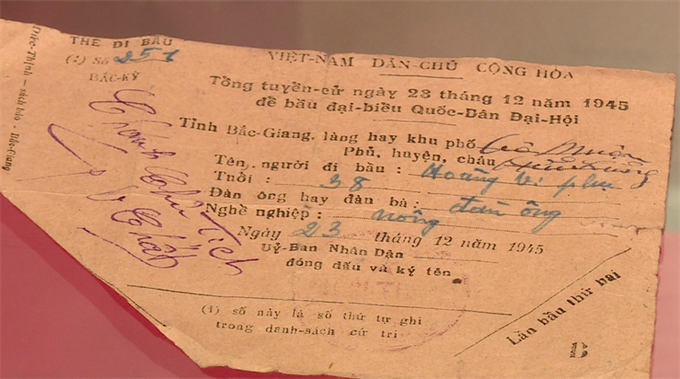 THẺ ĐI BẦU
(1) Số 251
BẮC-KỲ
VIỆT-NAM DÂN-CHỦ CỘNG HÒA
Tổng tuyển-cử ngày 23 tháng 12 năm 1945
để bầu đại-biểu Quốc-Dân Đại-Hội
Tỉnh Bắc-Giang, làng hay khu phố
Phủ, huyện, châu
Tên, người đi bầu : Hoàng Vi
Tuổi : 38
Đàn ông hay đàn bà : đàn ông
Nghề nghiệp : nông
Ngày 23 tháng 12 năm 1945
Uỷ-Ban Nhân Dân
đóng dấu và ký tên
(1) số này là số thứ tự ghi
trong danh-sách cử tri
Lần bầu thứ hai
Đức-Thịnh — sách báo — Bắc-Giang
Chánh Chủ Tịch